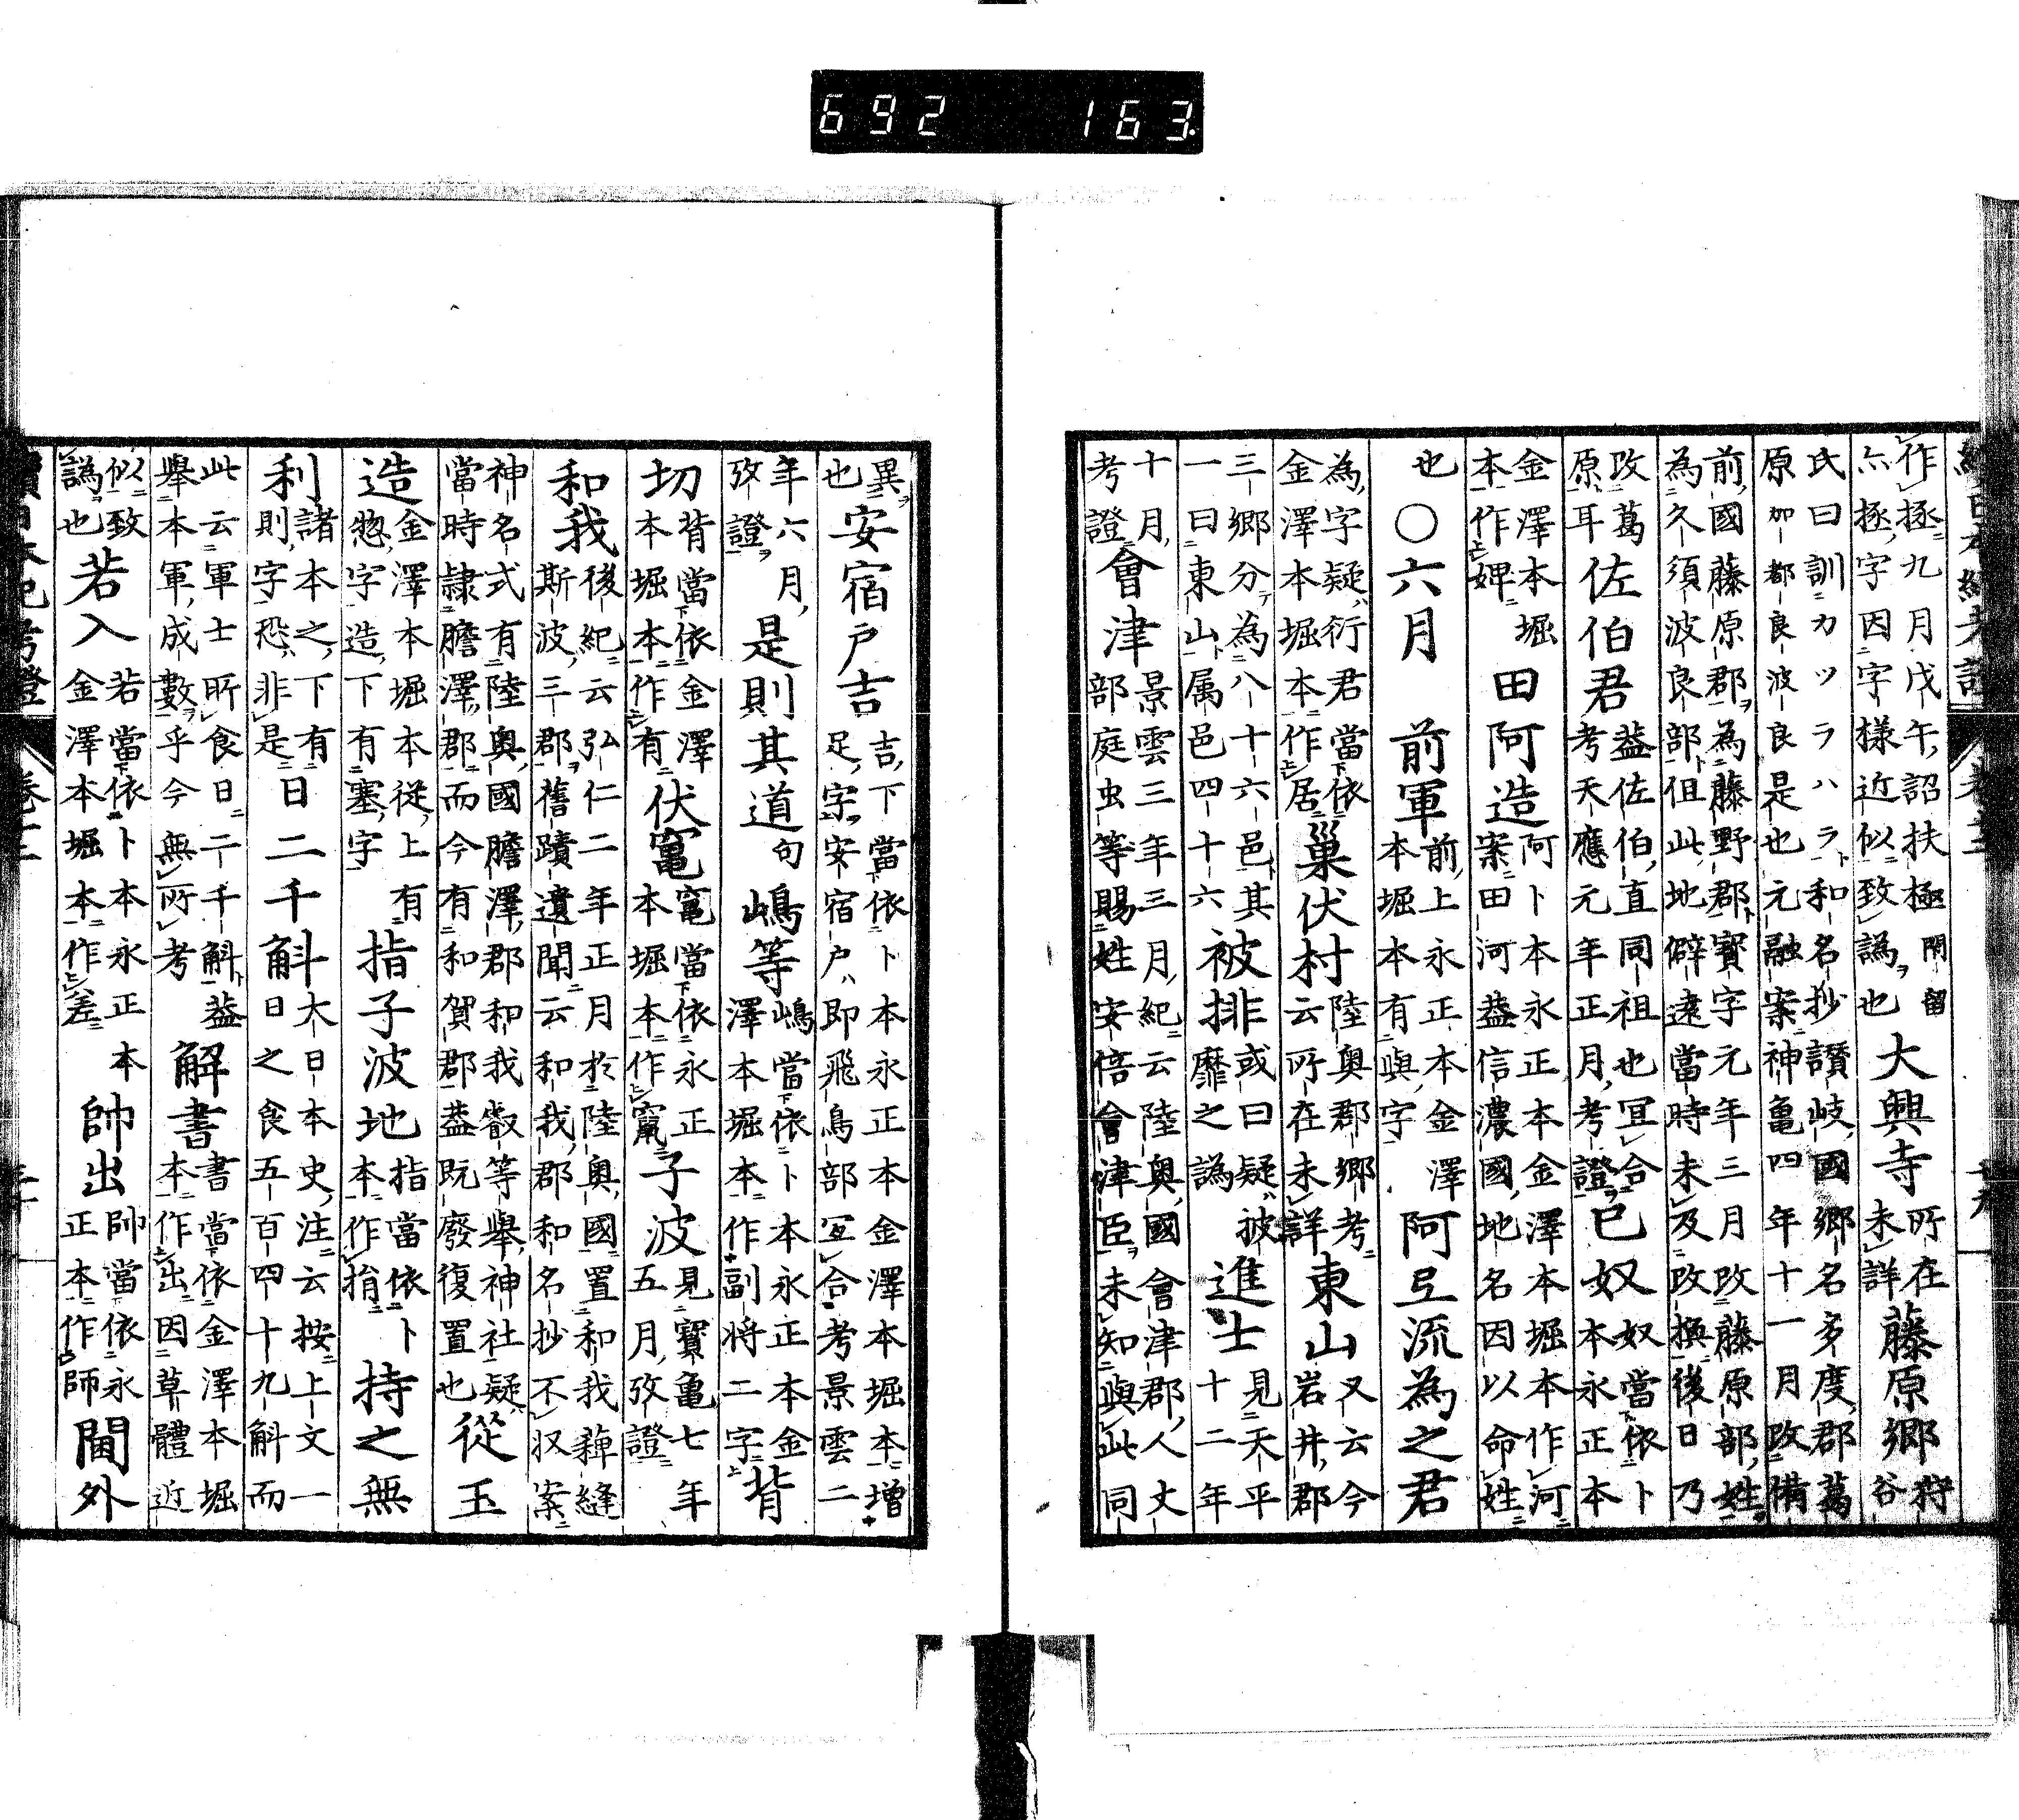 692 163
作拯九月戊午詔扶極閇留
亦拯字因字様近似致譌也大興寺所在未詳藤原郷狩谷
氏曰訓カツラハラ和名抄讃岐國郷名多度郡葛
原加都良波良是也元融案神亀四年十一月改備
前國藤原郡為藤野郡寳字元年三月改藤原部姓
為久須波良部但此地僻遠當時未及改換後日乃
改葛原耳佐伯君葢佐伯直同祖也冝合考天應元年正月考證已奴奴當依卜本永正本
金澤本堀本作婢田阿造阿卜本永正本金澤本堀本作河案田河葢信濃國地名因以命姓
也〇六月前軍前上永正本金澤本堀本有與字阿弖流為之君
為字疑衍君當依金澤本堀本作居巢伏村陸奥郡郷考云所在未詳東山又云今岩井郡
三郷分為八十六邑其一曰東山属邑四十六被排或曰疑披靡之譌進士見天平十二年
十月考證會津景雲三年三月紀云陸奥國會津郡人丈部庭虫等賜姓安倍會津臣未知與此同
異也安宿戸吉吉下當依卜本永正本金澤本堀本増足字安宿戸即飛鳥部冝合考景雲二
年六月攷證是則其道句嶋等嶋當依卜本永正本金澤本堀本作副将二字背
切背當依金澤本堀本作有伏竃竃當依永正本堀本作竄子波見寳亀七年五月攷證
和我後紀云弘仁二年正月於陸奥國置和我薭縫斯波三郡舊蹟遺聞云和我郡和名抄不収案
神名式有陸奥國膽澤郡和我叡等舉神社疑當時隷膽澤郡而今有和賀郡葢既廢復置也從玉
造金澤本堀本從上有惣字造下有塞字指子波地指當依卜本作揩持之無
利諸本之下有則字恐非是日二千斛大日本史注云按上文一日之食五百四十九斛而
此云軍士所食日二千斛葢舉本軍成數乎今無所考解書書當依金澤本堀本作出因草體近
似致譌也若入若當依卜本永正本金澤本堀本作差帥出帥當依永正本作師閫外